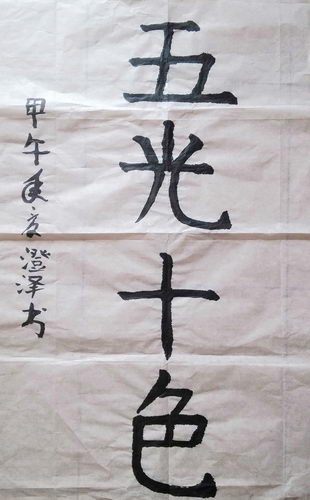 五光十色
甲午年夏澄泽书